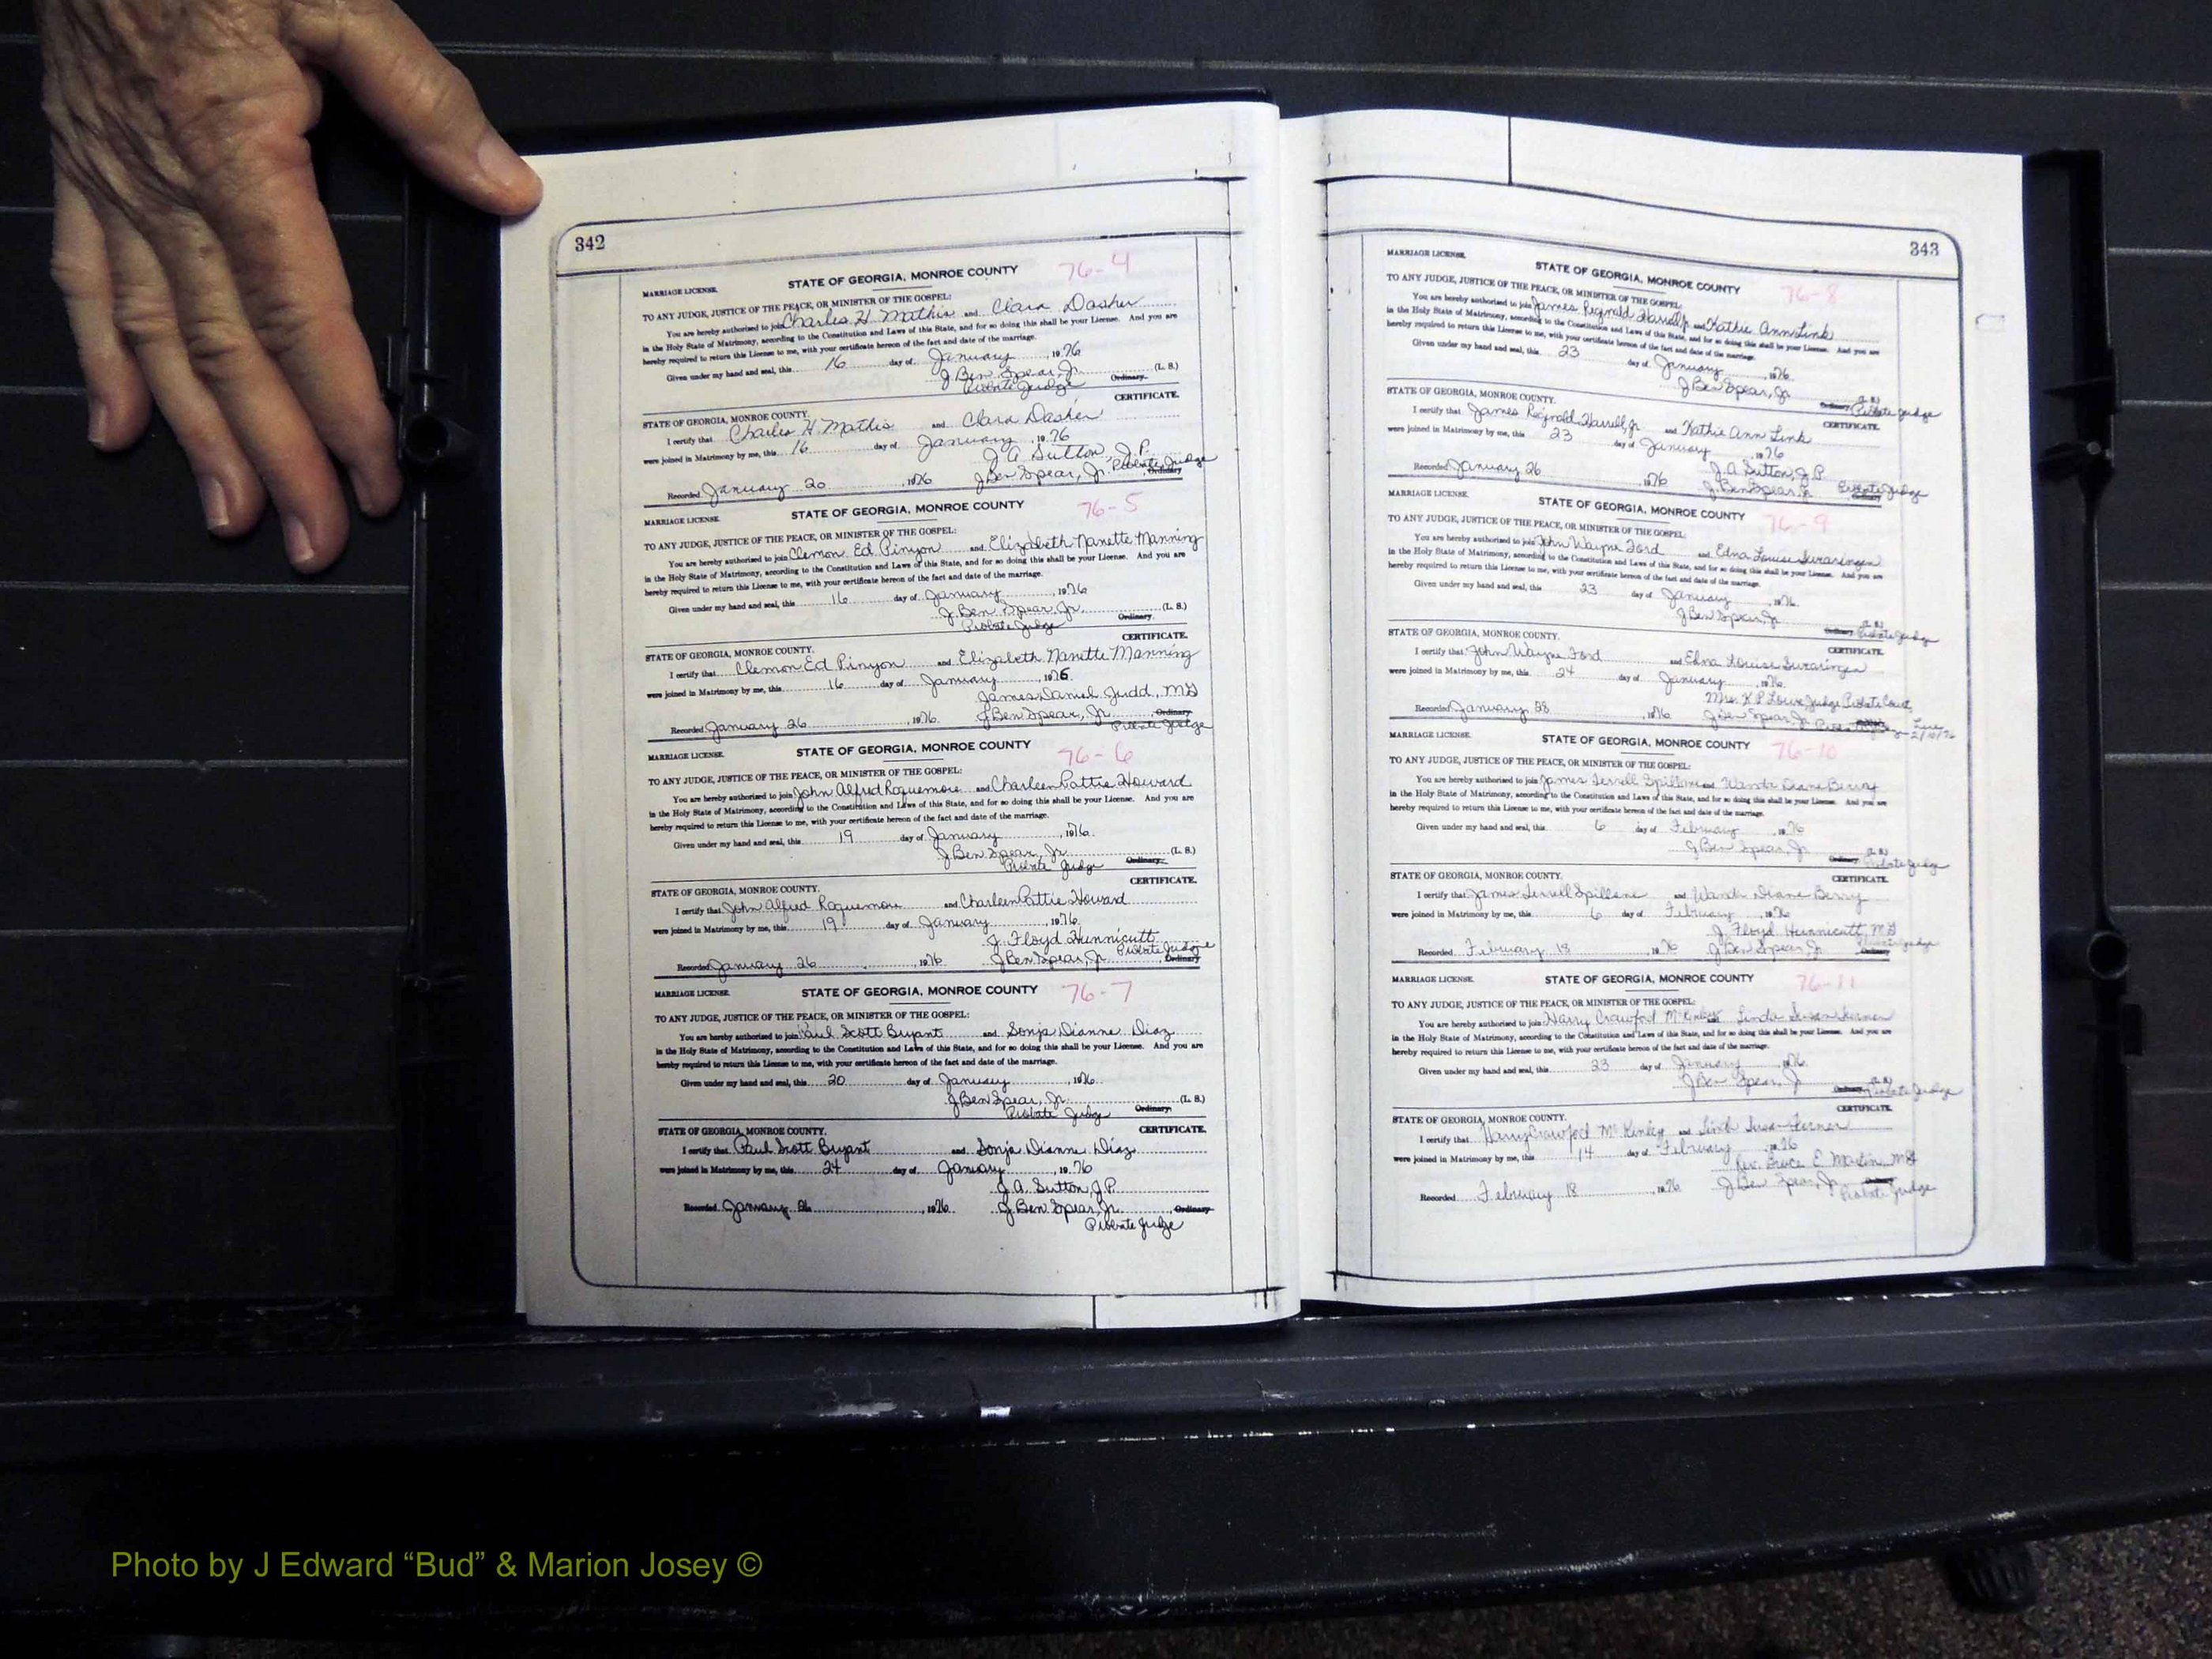 342
MARRIAGE LICENSE. STATE OF GEORGIA, MONROE COUNTY 76-4
TO ANY JUDGE, JUSTICE OF THE PEACE, OR MINISTER OF THE GOSPEL:
You are hereby authorized to join Charles H Mathis and Clara Dasher
in the Holy State of Matrimony, according to the Constitution and Laws of this State, and for so doing this shall be your License. And you are
hereby required to return this License to me, with your certificate hereon of the fact and date of the marriage.
Given under my hand and seal, this 16 day of January, 1976
J Ben Spear, Jr. (L. S.)
Probate Judge Ordinary.
STATE OF GEORGIA, MONROE COUNTY. CERTIFICATE.
I certify that Charles H Mathis and Clara Dasher
were joined in Matrimony by me, this 16 day of January, 1976
J A Sutton, J.P.
Recorded January 20, 1976 J Ben Spear, Jr. Probate Judge Ordinary
MARRIAGE LICENSE. STATE OF GEORGIA, MONROE COUNTY 76-5
TO ANY JUDGE, JUSTICE OF THE PEACE, OR MINISTER OF THE GOSPEL:
You are hereby authorized to join Clemon Ed Pinyon and Elizabeth Nanette Manning
in the Holy State of Matrimony, according to the Constitution and Laws of this State, and for so doing this shall be your License. And you are
hereby required to return this License to me, with your certificate hereon of the fact and date of the marriage.
Given under my hand and seal, this 16 day of January, 1976
J. Ben Spear, Jr. (L. S.)
Probate Judge Ordinary.
STATE OF GEORGIA, MONROE COUNTY. CERTIFICATE.
I certify that Clemon Ed Pinyon and Elizabeth Nanette Manning
were joined in Matrimony by me, this 16 day of January, 1976.
James Daniel Judd, MG
Recorded January 26, 1976. J Ben Spear, Jr. Ordinary
Probate Judge
MARRIAGE LICENSE. STATE OF GEORGIA, MONROE COUNTY 76-6
TO ANY JUDGE, JUSTICE OF THE PEACE, OR MINISTER OF THE GOSPEL:
You are hereby authorized to join John Alfred Roquemore and Charleen Pattie Howard
in the Holy State of Matrimony, according to the Constitution and Laws of this State, and for so doing this shall be your License. And you are
hereby required to return this License to me, with your certificate hereon of the fact and date of the marriage.
Given under my hand and seal, this 19 day of January, 1976.
J Ben Spear, Jr. (L. S.)
Probate Judge Ordinary.
STATE OF GEORGIA, MONROE COUNTY. CERTIFICATE.
I certify that John Alfred Roquemore and Charleen Pattie Howard
were joined in Matrimony by me, this 19 day of January, 1976.
J. Floyd Hunnicutt
Recorded January 26, 1976. J Ben Spear, Jr. Probate Judge Ordinary
MARRIAGE LICENSE. STATE OF GEORGIA, MONROE COUNTY 76-7
TO ANY JUDGE, JUSTICE OF THE PEACE, OR MINISTER OF THE GOSPEL:
You are hereby authorized to join Paul Scott Bryant and Sonja Dianne Diaz
in the Holy State of Matrimony, according to the Constitution and Laws of this State, and for so doing this shall be your License. And you are
hereby required to return this License to me, with your certificate hereon of the fact and date of the marriage.
Given under my hand and seal, this 20 day of January, 1976.
J Ben Spear, Jr. (L. S.)
Probate Judge Ordinary.
STATE OF GEORGIA, MONROE COUNTY. CERTIFICATE.
I certify that Paul Scott Bryant and Sonja Dianne Diaz
were joined in Matrimony by me, this 24 day of January, 1976
J. A. Sutton, J.P.
Recorded January 26, 1976. J. Ben Spear, Jr. Ordinary
Probate Judge
343
MARRIAGE LICENSE. STATE OF GEORGIA, MONROE COUNTY 76-8
TO ANY JUDGE, JUSTICE OF THE PEACE, OR MINISTER OF THE GOSPEL:
You are hereby authorized to join James Reginald Harrell, Jr. and Kathie Ann Link
in the Holy State of Matrimony, according to the Constitution and Laws of this State, and for so doing this shall be your License. And you are
hereby required to return this License to me, with your certificate hereon of the fact and date of the marriage.
Given under my hand and seal, this 23 day of January, 1976.
J Ben Spear, Jr (L. S.)
Ordinary. Probate Judge
STATE OF GEORGIA, MONROE COUNTY. CERTIFICATE.
I certify that James Reginald Harrell, Jr. and Kathie Ann Link
were joined in Matrimony by me, this 23 day of January, 1976
J. A. Sutton, J. P.
Recorded January 26, 1976 J. Ben Spear, Jr Probate Judge
MARRIAGE LICENSE. STATE OF GEORGIA, MONROE COUNTY 76-9
TO ANY JUDGE, JUSTICE OF THE PEACE, OR MINISTER OF THE GOSPEL:
You are hereby authorized to join John Wayne Ford and Edna Louise Swaringen
in the Holy State of Matrimony, according to the Constitution and Laws of this State, and for so doing this shall be your License. And you are
hereby required to return this License to me, with your certificate hereon of the fact and date of the marriage.
Given under my hand and seal, this 23 day of January, 1976.
J Ben Spear, Jr (L. S.)
Ordinary. Probate Judge
STATE OF GEORGIA, MONROE COUNTY. CERTIFICATE.
I certify that John Wayne Ford and Edna Louise Swaringen
were joined in Matrimony by me, this 24 day of January, 1976.
Mrs. K P Lowe, Judge Probate Court,
Recorded January 28, 1976. J Ben Spear, Jr
MARRIAGE LICENSE. STATE OF GEORGIA, MONROE COUNTY 76-10
TO ANY JUDGE, JUSTICE OF THE PEACE, OR MINISTER OF THE GOSPEL:
You are hereby authorized to join James Terrell Spillane and Wanda Diane Berry
in the Holy State of Matrimony, according to the Constitution and Laws of this State, and for so doing this shall be your License. And you are
hereby required to return this License to me, with your certificate hereon of the fact and date of the marriage.
Given under my hand and seal, this 6 day of February, 1976
J Ben Spear, Jr (L. S.)
Ordinary. Probate Judge
STATE OF GEORGIA, MONROE COUNTY. CERTIFICATE.
I certify that James Terrell Spillane and Wanda Diane Berry
were joined in Matrimony by me, this 6 day of February, 1976
J. Floyd Hunnicutt, MG
Recorded February 18, 1976 J Ben Spear, Jr Ordinary
MARRIAGE LICENSE. STATE OF GEORGIA, MONROE COUNTY 76-11
TO ANY JUDGE, JUSTICE OF THE PEACE, OR MINISTER OF THE GOSPEL:
You are hereby authorized to join Harry Crawford McKinley Linda Susan
in the Holy State of Matrimony, according to the Constitution and Laws of this State, and for so doing this shall be your License. And you are
hereby required to return this License to me, with your certificate hereon of the fact and date of the marriage.
Given under my hand and seal, this 23 day of January, 1976.
J Ben Spear, Jr (L. S.)
Ordinary. Probate Judge
STATE OF GEORGIA, MONROE COUNTY. CERTIFICATE.
I certify that Harry Crawford McKinley and Linda Susan
were joined in Matrimony by me, this 14 day of February, 1976
Rev. Bruce E. Martin, MG
Recorded February 18, 1976 J Ben Spear, Jr Ordinary
Probate Judge
Photo by J Edward “Bud” & Marion Josey ©